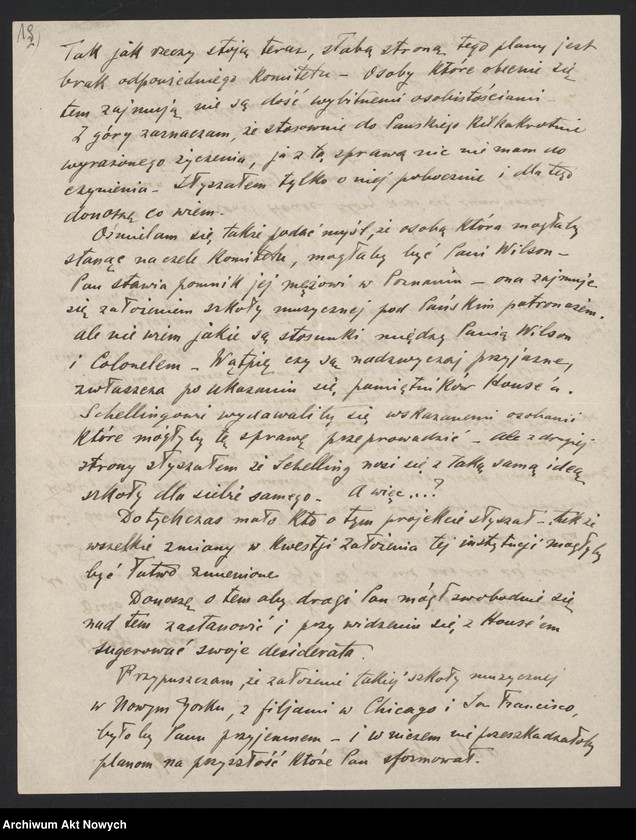 Tak jak rzeczy stoją teraz, słabą stroną tego planu jest
brak odpowiedniego Komitetu – Osoby które obecnie się
tem zajmują nie są dość wybitnemi osobistościami.
Z góry zaznaczam, że stosownie do Pańskiego kilkakrotnie
wyrażonego życzenia, ja z tą sprawą nic nie mam do
czynienia – słyszałem tylko o niej pobocznie i dla tego
donoszę co wiem.
Ośmielam się także podać myśl, że osobą która mogłaby
stanąć na czele Komitetu, mogłaby być Pani Wilson –
Pan stawia pomnik jej mężowi w Poznaniu – ona zajmuje
się założeniem szkoły muzycznej pod Pańskim patronatem.
ale nie wiem jakie są stosunki między Panią Wilson
i Colonelem – Wątpię czy są nadzwyczaj przyjazne,
zwłaszcza po ukazaniu się pamiętników House'a.
Schellingowie wydawaliby się wskazanemi osobami
które mógłyby tę sprawę przeprowadzić – ale z drugiej
strony słyszałem że Schelling nosi się z taką samą ideą
szkoły dla siebie samego – A więc...?
Dotychczas mało kto o tym projekcie słyszał – tak że
wszelkie zmiany w kwestji założenia tej instytucji mogłyby
być łatwo zmienione
Donoszę o tem aby drogi Pan mógł swobodnie się
nad tem zastanowić i przy widzeniu się z House'em
sugerować swoje desiderata.
Przypuszczam, że założenie takiej szkoły muzycznej
w Nowym Yorku, z filjami w Chicago i San Francisco,
byłoby Panu przyjemnem – i w niczem nie przeszkadzałoby
planom na przyszłość które Pan sformował.
Archiwum Akt Nowych